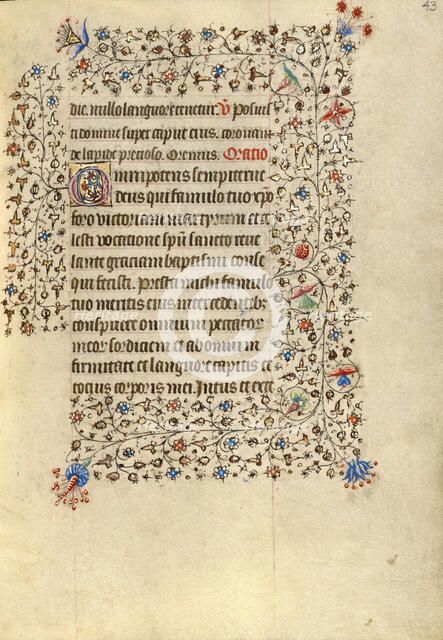 43
die. nullo languore tenetur. V Posuis
ti domine super caput eius. coronam
de lapide precioso. Oremus. Oratio
Omnipotens sempiterne
deus qui famulo tuo xpo
foro victoriam martyrium et ce
lesti vocatione spu sancto reue
lante gratiam baptismi conse
qui fecisti. Presta michi famulo
tuo meritis eius intercedentib3
conspuere omnium peccator
meor sordiciem et abomin in
firmitate et languore capitis et
tocius corporis mei. Intus et exte
Heritage